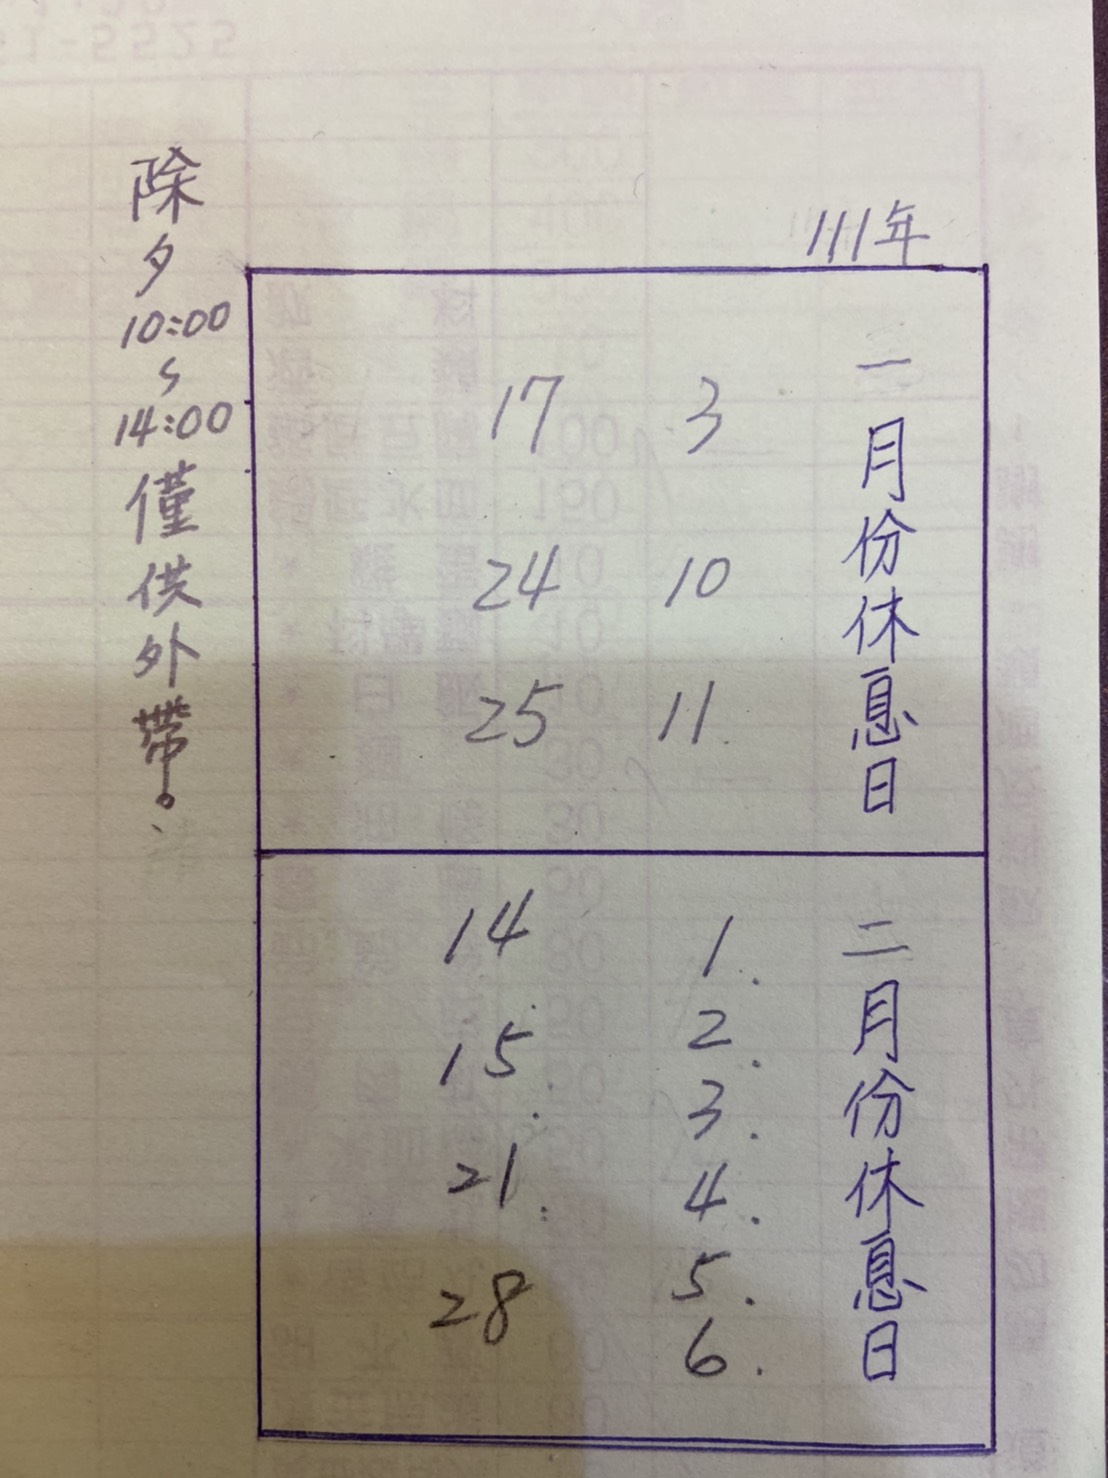 111年
一月份休息日
3
10
11
17
24
25
二月份休息日
1.
2.
3.
4.
5.
6.
14
15.
21.
28
除夕10:00~14:00僅供外帶。